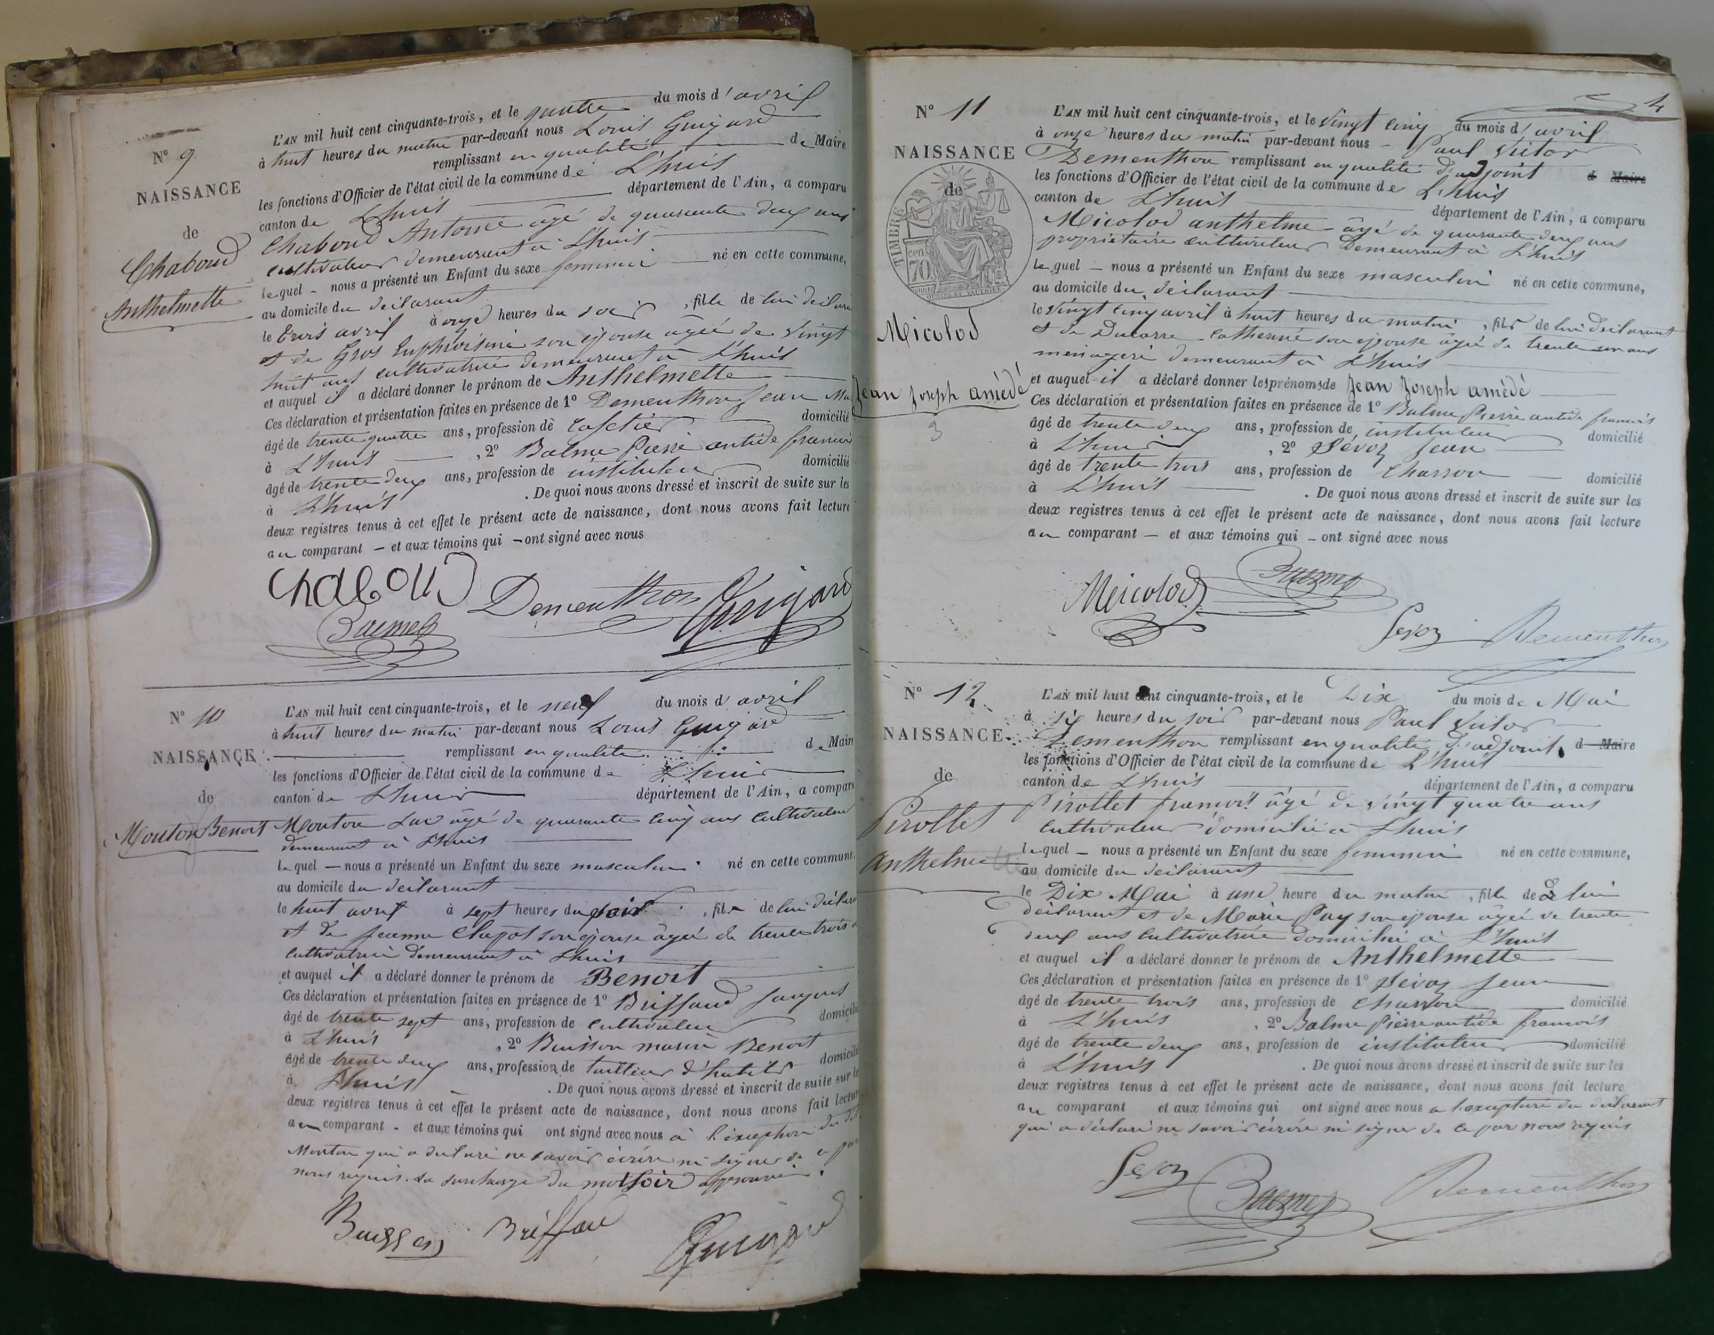 N° 9
NAISSANCE
de
Chaboud
Anthelmette
L'AN mil huit cent cinquante-trois, et le quatre du mois d'avril
à huit heures du matin par-devant nous Louis Guigard
remplissant en qualité de Maire
les fonctions d'Officier de l'état civil de la commune de L'huis
canton de L'huis département de l'Ain, a comparu
Chaboud Antoine âgé de quarante deux ans
cultivateur demeurant à L'huis
lequel nous a présenté un Enfant du sexe feminin né en cette commune,
au domicile du déclarant
le trois avril à onze heures du soir, fille de lui déclarant
et de Gros Euphrosine son épouse âgée de vingt
huit ans cultivatrice demeurant à L'huis
et auquel il a déclaré donner le prénom de Anthelmette
Ces déclaration et présentation faites en présence de 1° Dementhon Jean
âgé de trente quatre ans, profession de cafetier domicilié
à L'huis, 2° Balme Pierre antide françois
âgé de trente deux ans, profession de instituteur domicilié
à L'huis. De quoi nous avons dressé et inscrit de suite sur les
deux registres tenus à cet effet le présent acte de naissance, dont nous avons fait lecture
au comparant et aux témoins qui ont signé avec nous
Chaboud Dementhon Guigard
Balme
N° 10
NAISSANCE
de
Mouton Benoit
L'AN mil huit cent cinquante-trois, et le neuf du mois d'avril
à huit heures du matin par-devant nous Louis Guigard
remplissant en qualité de Maire
les fonctions d'Officier de l'état civil de la commune de L'huis
canton de L'huis département de l'Ain, a comparu
Mouton âgé de quarante cinq ans cultivateur
demeurant à L'huis
lequel nous a présenté un Enfant du sexe masculin né en cette commune,
au domicile du déclarant
le huit avril à sept heures du soir, fils de lui déclarant
et de Jeanne Chapot son épouse âgée de trente trois
cultivatrice demeurant à L'huis
et auquel il a déclaré donner le prénom de Benoit
Ces déclaration et présentation faites en présence de 1° Briffaud
âgé de trente sept ans, profession de cultivateur domicilié
à L'huis, 2° Buisson Benoit
âgé de trente deux ans, profession de tailleur d'habits domicilié
à L'huis. De quoi nous avons dressé et inscrit de suite sur les
deux registres tenus à cet effet le présent acte de naissance, dont nous avons fait lecture
au comparant et aux témoins qui ont signé avec nous à l'exception du dit
Mouton qui a déclaré ne savoir écrire ni signer de ce par
nous requis. la surcharge du mot soir approuvée
Buisson Briffau Guigard
4
N° 11
NAISSANCE
de
TIMBRE
70
Micolod
Jean Joseph amédé
3
L'AN mil huit cent cinquante-trois, et le vingt cinq du mois d'avril
à onze heures du matin par-devant nous Paul Victor
Dementhon remplissant en qualité d'adjoint d Maire
les fonctions d'Officier de l'état civil de la commune de L'huis
canton de L'huis département de l'Ain, a comparu
Micolod anthelme âgé de quarante deux ans
propriétaire cultivateur demeurant à L'huis
lequel nous a présenté un Enfant du sexe masculin né en cette commune,
au domicile du déclarant
le vingt cinq avril à huit heures du matin, fils de lui déclarant
et de Ducarre Catherine son épouse âgée de trente ans
ménagère demeurant à L'huis
et auquel il a déclaré donner les prénoms de Jean Joseph amédé
Ces déclaration et présentation faites en présence de 1° Balme Pierre antide françois
âgé de trente deux ans, profession de instituteur domicilié
à L'huis, 2° Sévoz Jean
âgé de trente trois ans, profession de Charron domicilié
à L'huis. De quoi nous avons dressé et inscrit de suite sur les
deux registres tenus à cet effet le présent acte de naissance, dont nous avons fait lecture
au comparant et aux témoins qui ont signé avec nous
Micolod Balme
Sevoz Dementhon
N° 12
NAISSANCE
de
Pirollet
Anthelmette
L'AN mil huit cent cinquante-trois, et le Dix du mois de Mai
à six heures du soir par-devant nous Paul Victor
Dementhon remplissant en qualité d'adjoint d Maire
les fonctions d'Officier de l'état civil de la commune de L'huis
canton de L'huis département de l'Ain, a comparu
Pirollet françois âgé de vingt quatre ans
cultivateur domicilié à L'huis
lequel nous a présenté un Enfant du sexe feminin né en cette commune,
au domicile du déclarant
le Dix Mai à une heure du matin, fille de lui
déclarant et de Marie Pay son épouse âgée de trente
deux ans cultivatrice domiciliée à L'huis
et auquel il a déclaré donner le prénom de Anthelmette
Ces déclaration et présentation faites en présence de 1° Sévoz Jean
âgé de trente trois ans, profession de charron domicilié
à L'huis, 2° Balme Pierre antide françois
âgé de trente deux ans, profession de instituteur domicilié
à L'huis. De quoi nous avons dressé et inscrit de suite sur les
deux registres tenus à cet effet le présent acte de naissance, dont nous avons fait lecture
au comparant et aux témoins qui ont signé avec nous a l'exception du déclarant
qui a déclaré ne savoir écrire ni signer de ce par nous requis
Sevoz Balme Dementhon